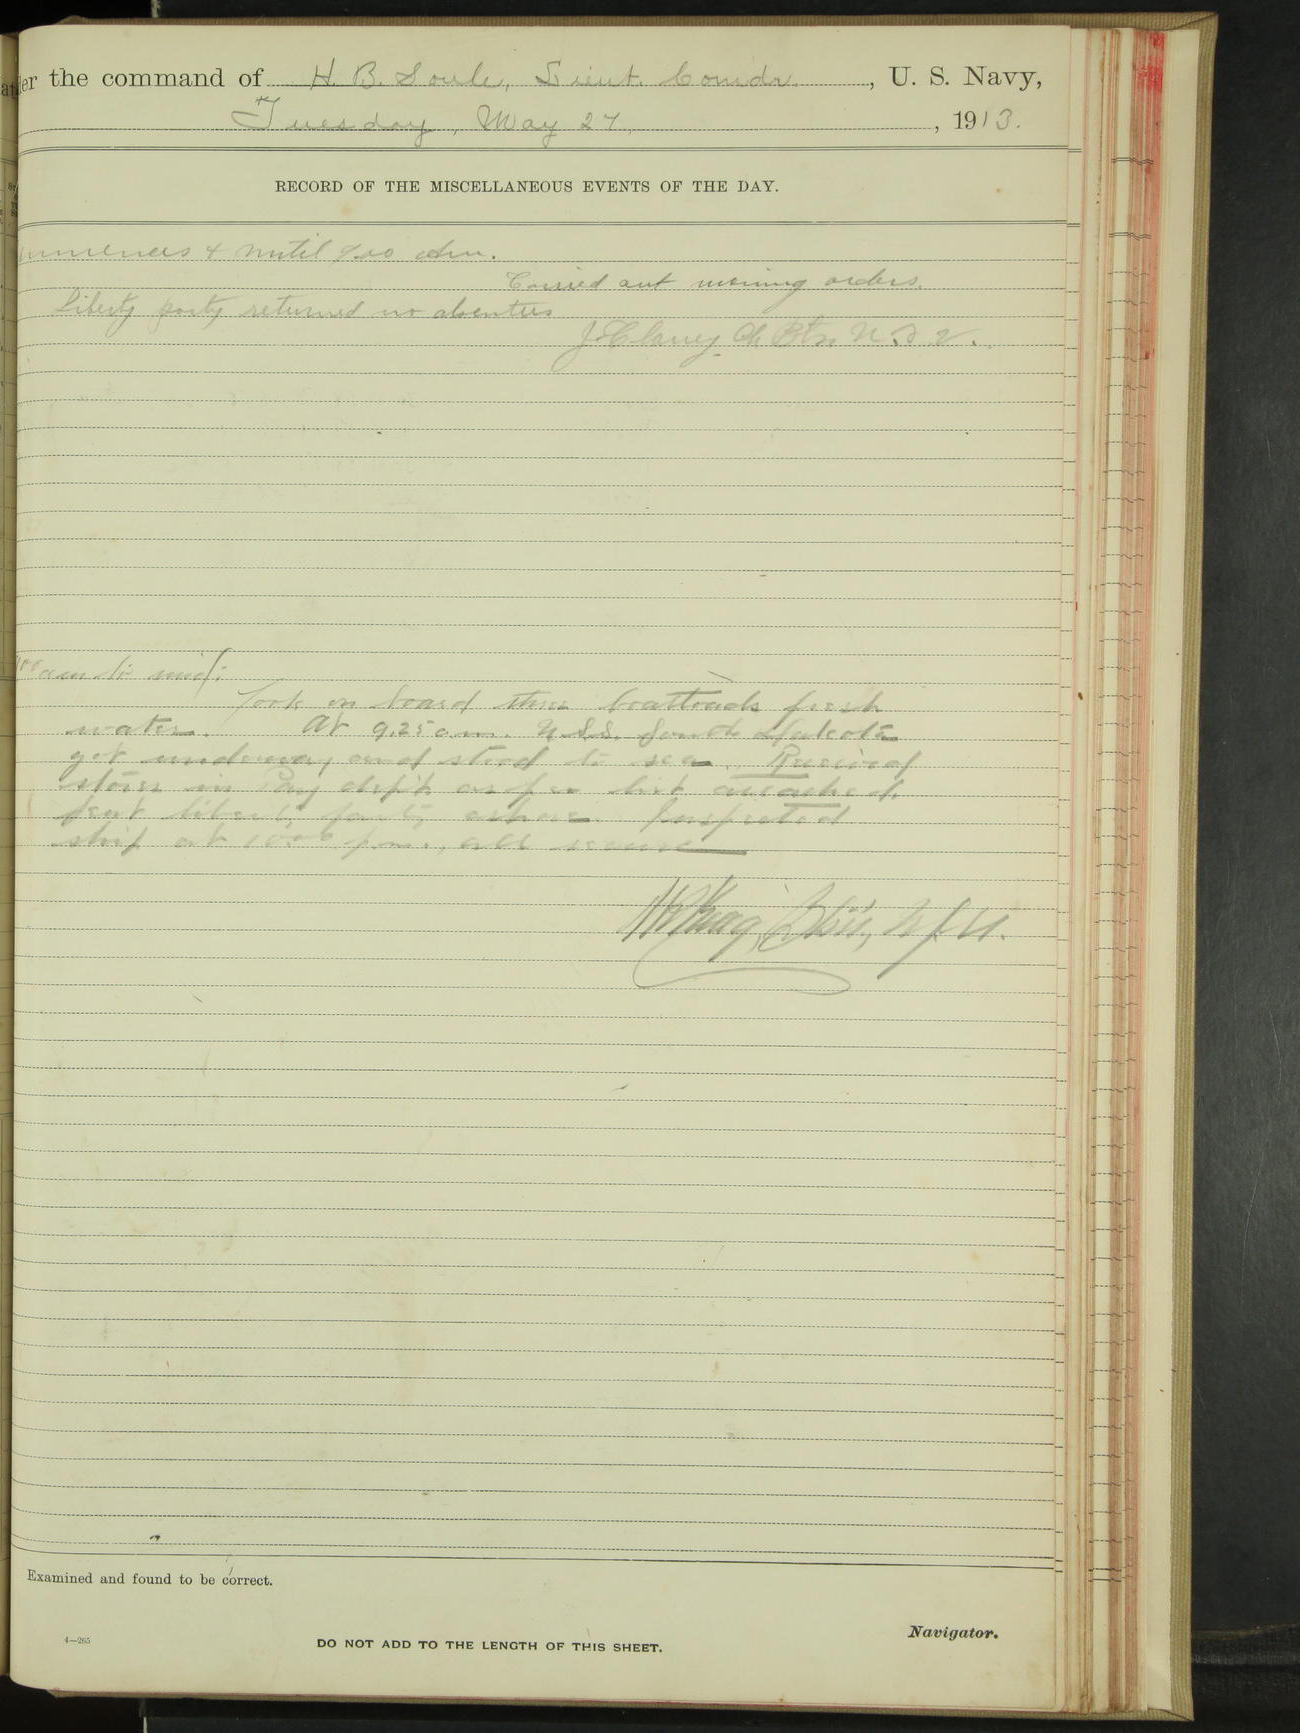 der the command of H. B. Soule, Lieut. Comdr., U. S. Navy,
Tuesday, May 27, 1913.
RECORD OF THE MISCELLANEOUS EVENTS OF THE DAY.
& until 9.00 am.
Carried out morning orders.
Liberty party returned no absentees
Ch Btsn U.S.N.
am to mid:
Took on board three boatloads fresh
water. At 9.25 a.m. U.S.S. South Dakota
got underway and stood to sea. Received
stores in Pay dep't as per list attached.
Sent liberty party ashore. Inspected
ship at 10:00 p.m., all secure
Btsn, U.S.N.
Examined and found to be correct.
4—265
DO NOT ADD TO THE LENGTH OF THIS SHEET.
Navigator.